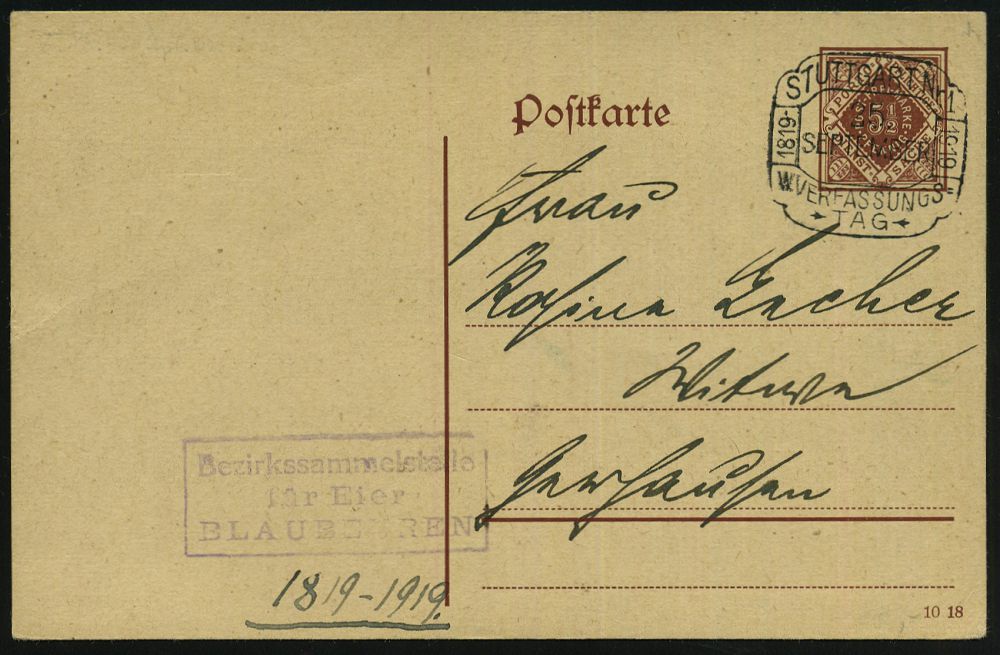 Postkarte
STUTTGART Nr. 1
1819-
25.
SEPTEMBER
1919
W. VERFASSUNGS-
TAG
Frau
Rosina Zacher
Witwe
Gerhausen
Bezirkssammelstelle
für Eier
BLAUBEUREN
1819-1919.
10 18